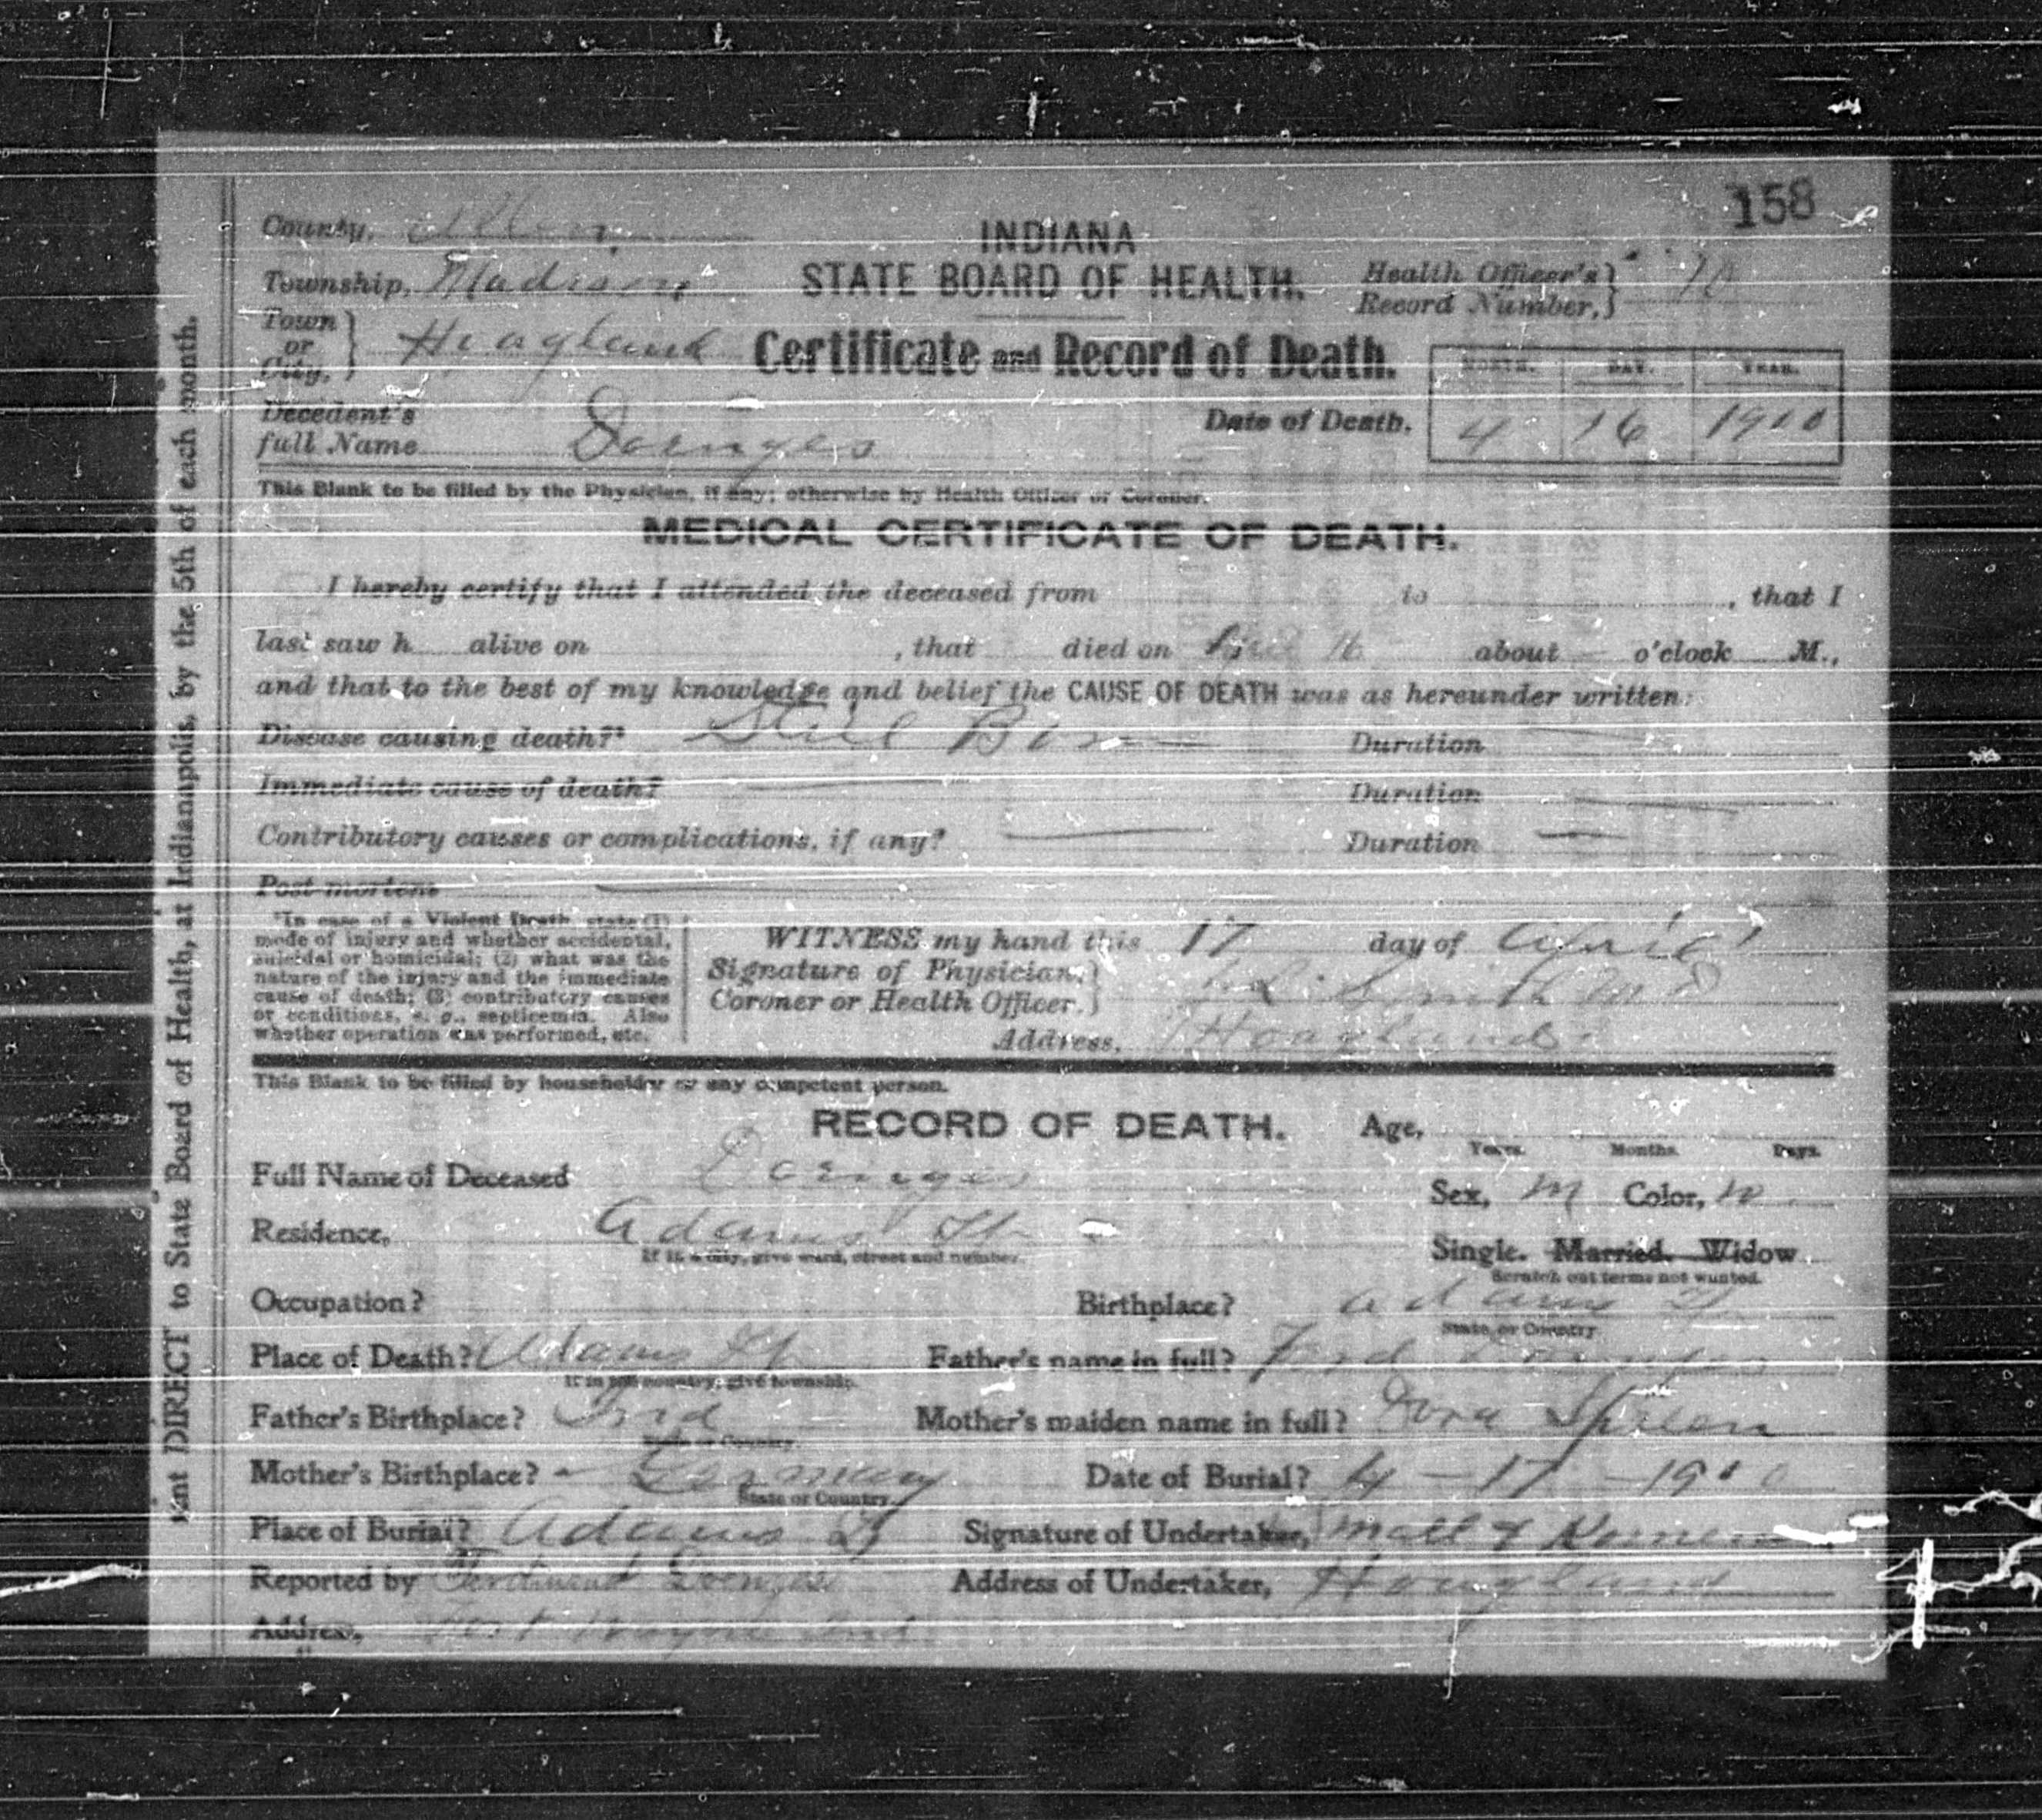 158
County, Allen.
INDIANA
Township, Madison
STATE BOARD OF HEALTH.
Health Officer's Record Number,
Town or City, Hoagland
Certificate and Record of Death.
MONTH. DAY. YEAR.
Decedent's full Name Doenges
Date of Death. 4 16 1900
This Blank to be filled by the Physician, if any; otherwise by Health Officer or Coroner.
MEDICAL CERTIFICATE OF DEATH.
I hereby certify that I attended the deceased from to , that I
last saw h alive on , that died on April 16 about o'clock M.,
and that to the best of my knowledge and belief the CAUSE OF DEATH was as hereunder written:
Disease causing death?* Still Born Duration
Immediate cause of death? Duration
Contributory causes or complications, if any? Duration
Post mortem
*In case of a Violent Death state (1)
mode of injury and whether accidental,
suicidal or homicidal; (2) what was the
nature of the injury and the immediate
cause of death; (3) contributory causes
or conditions, e. g., septicemia. Also
whether operation was performed, etc.
WITNESS my hand this 17 day of April
Signature of Physician, Coroner or Health Officer. Smith M D
Address, Hoagland
This Blank to be filled by householder or any competent person.
RECORD OF DEATH. Age,
Years. Months. Days.
Full Name of Deceased Doenges
Sex, M Color, W.
Residence, Adams Tp
If in a city, give ward, street and number.
Single. Married. Widow
Scratch out terms not wanted.
Occupation? Birthplace? Adams Tp
State or Country
Place of Death? Adams Tp Father's name in full? Fred Doenges
If in the country, give township.
Father's Birthplace? Ind Mother's maiden name in full? Dora
State or Country.
Mother's Birthplace? Germany Date of Burial? 4-17-1900
State or Country.
Place of Burial? Adams Tp Signature of Undertaker, Small &
Reported by Ferdinand Doenges Address of Undertaker, Hoagland
Address, Fort Wayne Ind.
DIRECT to State Board of Health, at Indianapolis, by the 5th of each month.